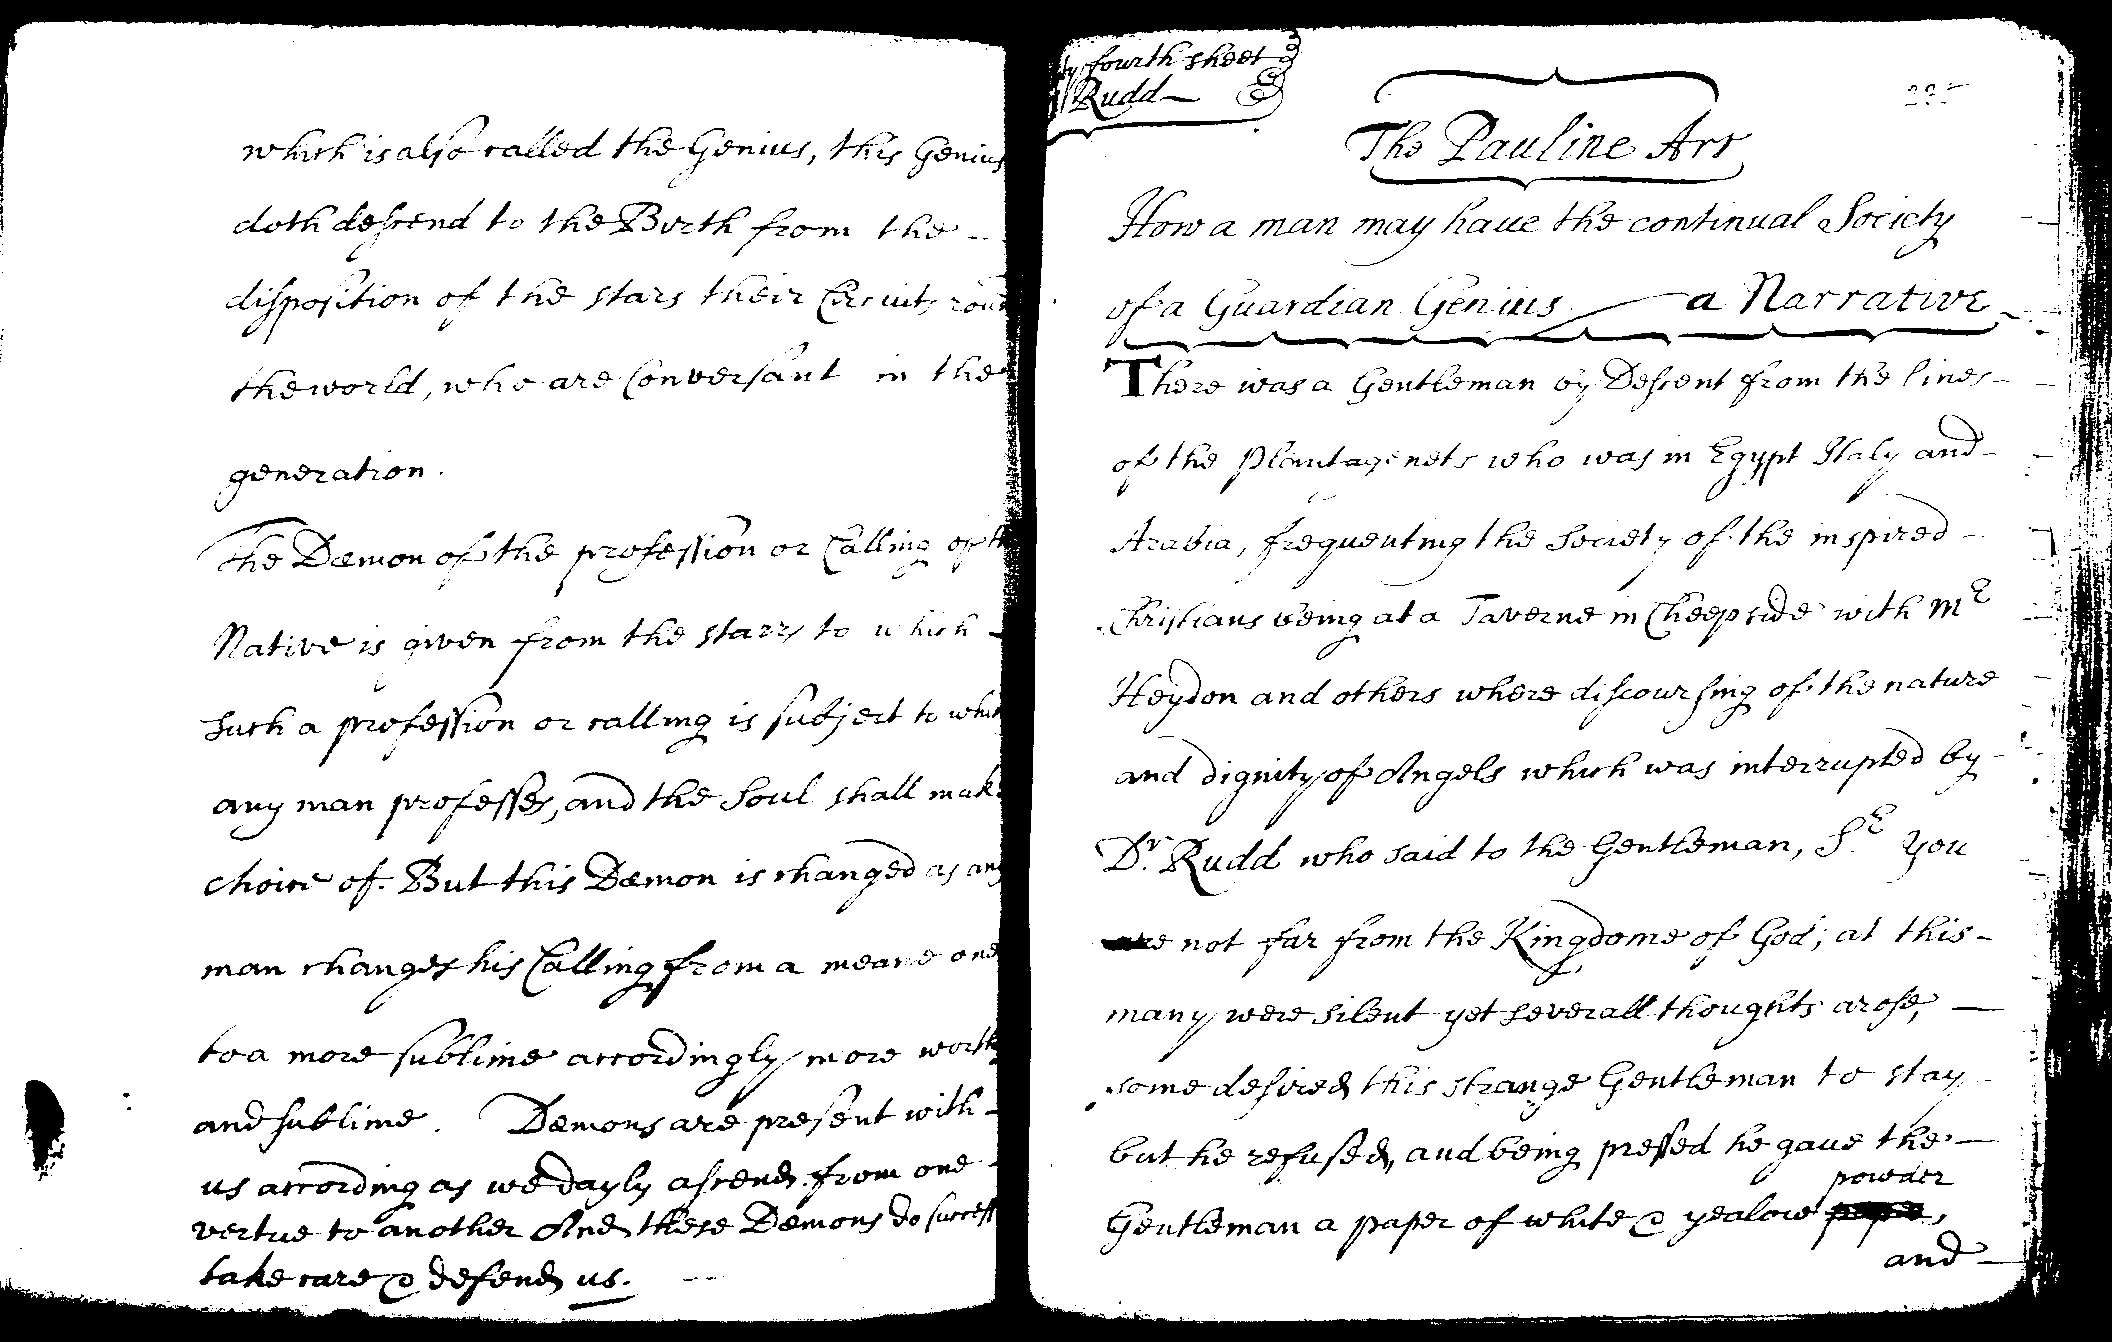 which is also called the Genius, this Genius
doth descend to the Birth from the
disposition of the stars their Circuits round
the world, who are Conversant in the
generation.
The Dæmon of the profession or Calling of the
Native is given from the starrs to which
such a profession or calling is subject to which
any man professes, and the Soul shall make
choice of. But this Dæmon is changed as any
man changes his Calling from a meane one
to a more sublime accordingly more worthy
and sublime. Dæmons are present with
us according as we dayly ascend from one
vertue to another And these Dæmons do success
take care & defend us.
ty fourth sheet
Rudd
The Pauline Art
How a man may haue the continual Society
of a Guardian Genius a Narrative
There was a Gentleman by Descent from the lines
of the Plantagenets who was in Egypt Italy and
Arabia, frequenting the Society of the inspired
Christians being at a Taverne in Cheepside with Mr
Heydon and others where discoursing of the nature
and dignity of Angels which was interrupted by
Dr. Rudd who said to the Gentleman, Sr. you
are not far from the Kingdome of God; at this
many were silent yet severall thoughts arose,
some desired this strange Gentleman to stay
but he refused, and being pressed he gaue the
powder
Gentleman a paper of white & yealow pape,
and